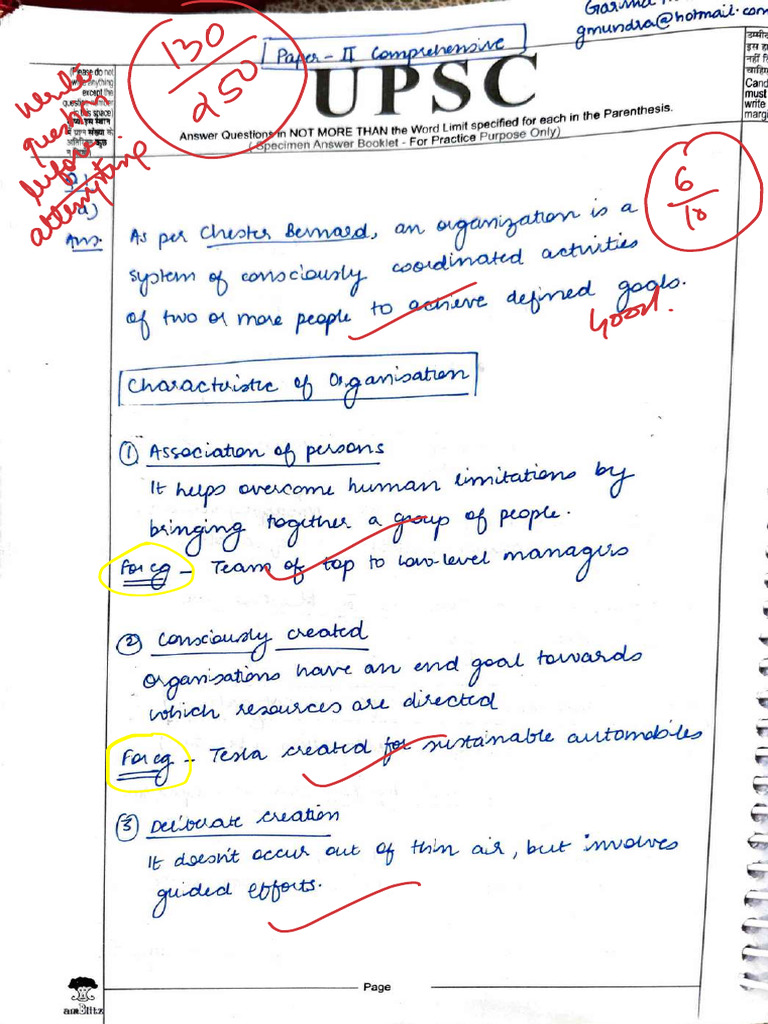 Garima
gmundra@hotmail.com
Paper - II Comprehensive
130
250
UPSC
Answer Questions in NOT MORE THAN the Word Limit specified for each in the Parenthesis.
(Specimen Answer Booklet - For Practice Purpose Only)
(Please do not
write anything
except the
question number
in this space)
write
question
before
attempting
a)
Ans:
6
10
As per Chester Bernard, an organization is a
system of consciously coordinated activities
of two or more people to achieve defined goals.
Good.
Characteristic of Organisation
① Association of persons
It helps overcome human limitations by
bringing together a group of people.
For eg - Team of top to low-level managers
② Consciously created
Organisations have an end goal towards
which resources are directed
For eg - Tesla created for sustainable automobiles
③ Deliberate creation
It doesn't occur out of thin air, but involves
guided efforts.
Page